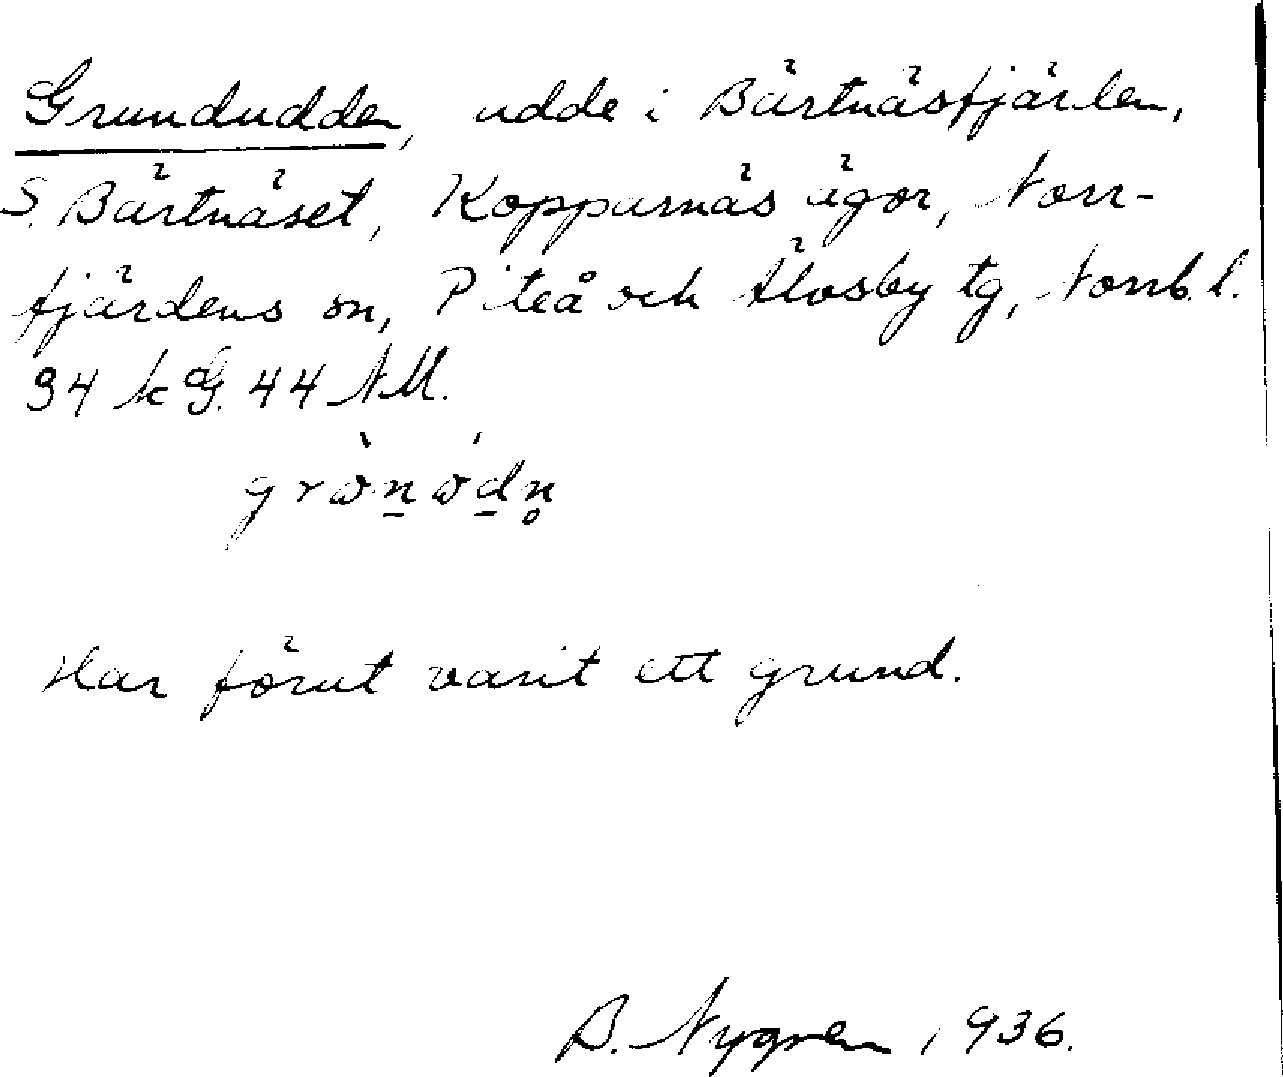 Grundudden, udde i Bärtnäsfjärlen,
S. Bärtnäset, Kopparnäs ägor, Norr-
fjärdens sn, Piteå och Älvsby tg, Norrb. l.
94 k G. 44 NM.
Har förut varit ett grund.
B. Nygren 1936.